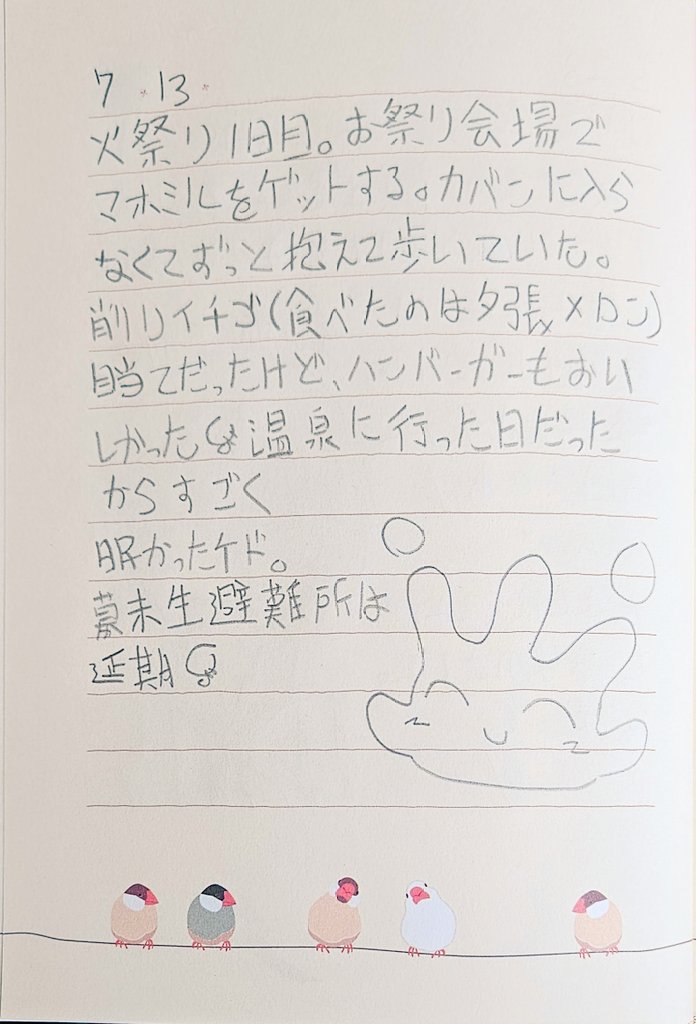 7 * 13 *
火祭り1日目。お祭り会場で
マホミルをゲットする。カバンに入ら
なくてずっと抱えて歩いていた。
削りイチゴ(食べたのは夕張メロン)
目当てだったけど、ハンバーガーもおい
しかった 温泉に行った日だった
からすごく
眠かったケド。
幕末生避難所は
延期